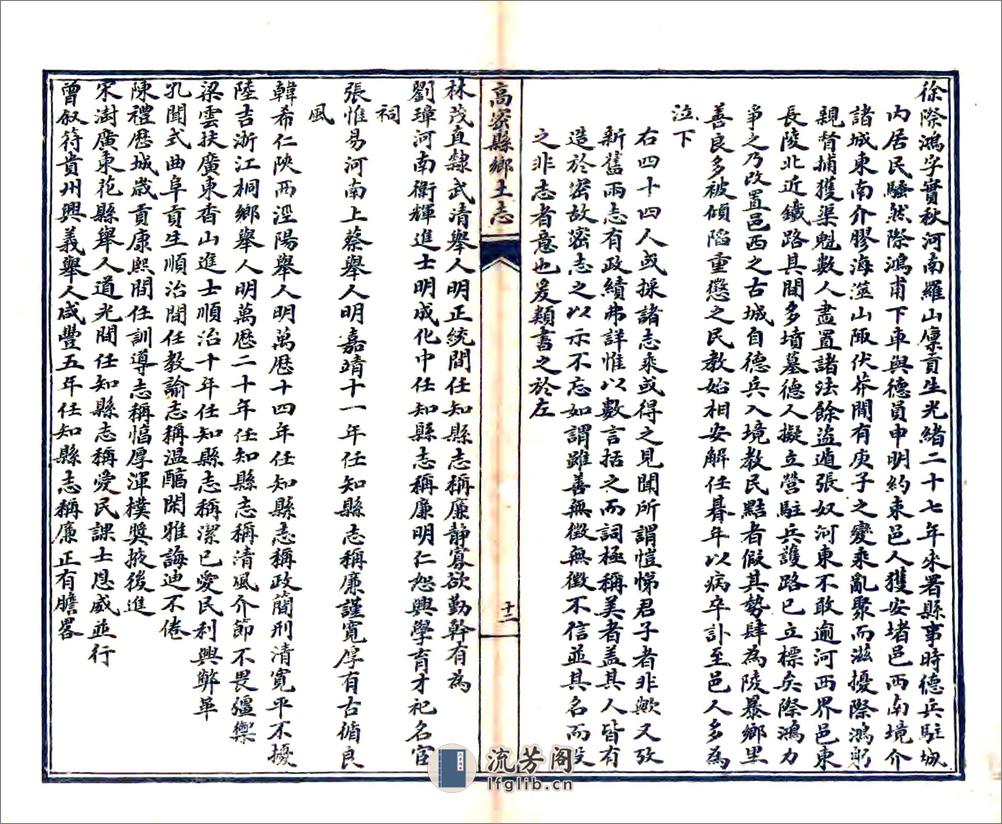 徐際鴻字實秋河南羅山廩貢生光緒二十七年來署縣事時德兵駐城
內居民騷然際鴻甫下車與德員申明約束邑人獲安堵邑西南境介
諸城東南介膠海澨山陬伏莽閒有庚子之變乘亂聚而滋擾際鴻躬
親督捕獲渠魁數人盡置諸法餘盜遁張奴河東不敢逾河西界邑東
長陵北近鐵路其閒多墳墓德人擬立營駐兵護路已立標矣際鴻力
爭之乃改置邑西之古城自德兵入境教民黠者假其勢肆為陵暴鄉里
善良多被傾陷重懲之民教始相安解任朞年以病卒訃至邑人多為
泣下
右四十四人或採諸志乘或得之見聞所謂愷悌君子者非歟又攷
新舊兩志有政績弗詳惟以數言括之而詞極稱美者蓋其人皆有
造於密故密志之以示不忘如謂雖善無徵無徵不信並其名而沒
之非志者意也爰類書之於左
高密縣鄉土志
十二
林茂直隸武清舉人明正統間任知縣志稱廉靜寡欲勤幹有為
劉璋河南衛輝進士明成化中任知縣志稱廉明仁恕興學育才祀名宦
祠
張惟易河南上蔡舉人明嘉靖十一年任知縣志稱廉謹寬厚有古循良
風
韓希仁陝西涇陽舉人明萬歷十四年任知縣志稱政簡刑清寬平不擾
陸吉浙江桐鄉舉人明萬歷二十年任知縣志稱清風介節不畏彊禦
梁雲扶廣東香山進士順治十年任知縣志稱潔已愛民利興弊革
孔聞式曲阜貢生順治間任教諭志稱温醕閑雅誨迪不倦
陳禮歷城歲貢康熙間任訓導志稱愊厚渾樸獎掖後進
宋澍廣東花縣舉人道光間任知縣志稱愛民課士恩威並行
曾叙符貴州興義舉人咸豐五年任知縣志稱廉正有膽畧
流芳阁
lfglib.cn